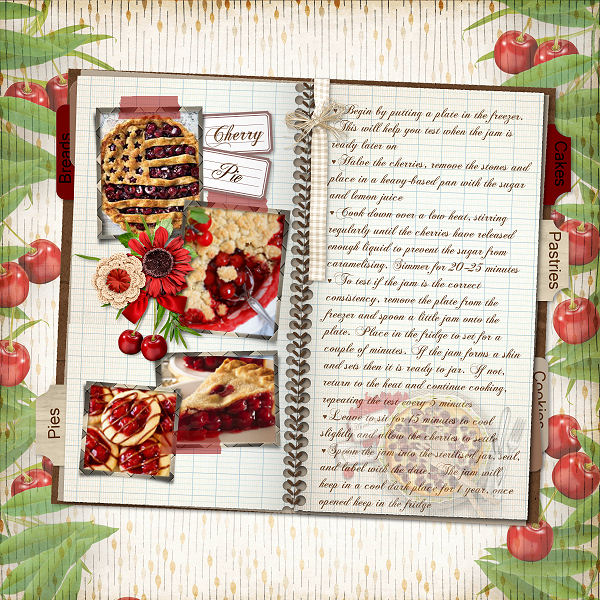 Breads
Cherry
Pie
Pies
♥Begin by putting a plate in the freezer.
This will help you test when the jam is
ready later on
♥Halve the cherries, remove the stones and
place in a heavy-based pan with the sugar
and lemon juice
♥Cook down over a low heat, stirring
regularly until the cherries have released
enough liquid to prevent the sugar from
caramelising. Simmer for 20-25 minutes
♥To test if the jam is the correct
consistency, remove the plate from the
freezer and spoon a little jam onto the
plate. Place in the fridge to set for a
couple of minutes. If the jam forms a skin
and sets then it is ready to jar. If not,
return to the heat and continue cooking,
repeating the test every 5 minutes
♥Leave to sit for 15 minutes to cool
slightly and allow the cherries to settle
♥Spoon the jam into the sterilised jar, seal,
and label with the date. The jam will
keep in a cool dark place for 1 year, once
opened keep in the fridge
Cakes
Pastries
Cookies